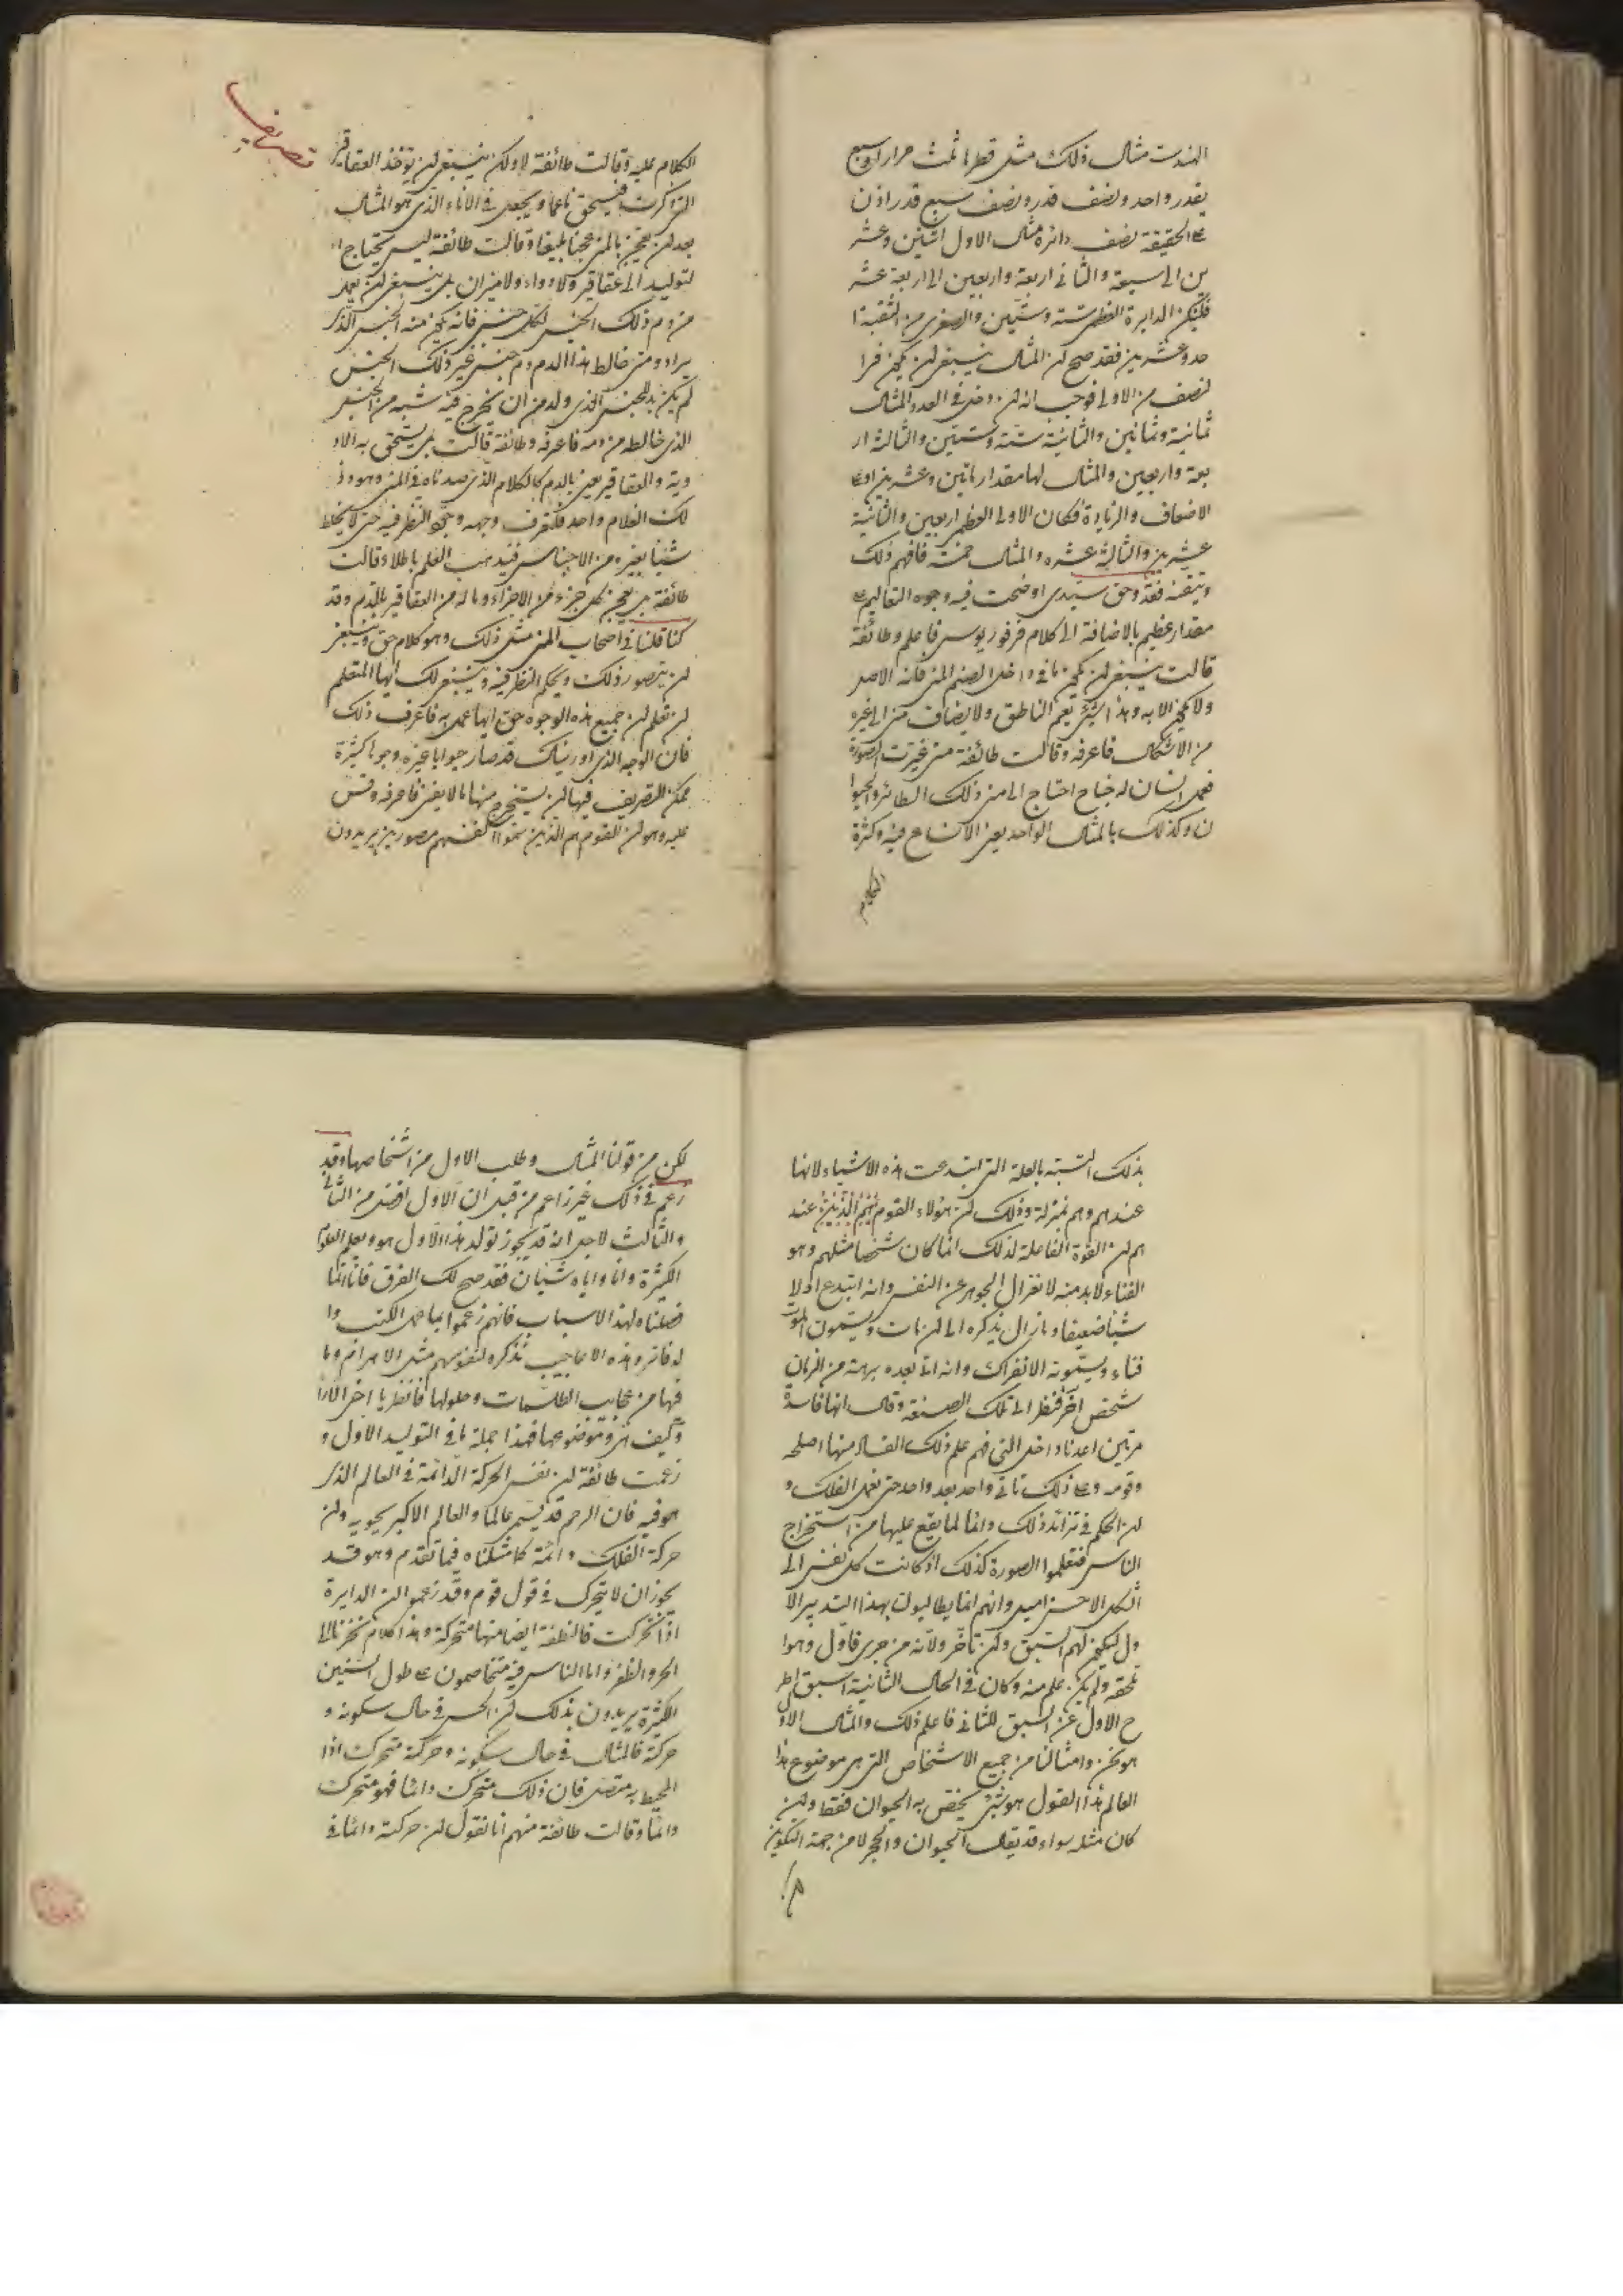 الهندست مثال ذلك مثل قطرها ثلث مرار وسبع
بقدر واحد ونصف قدر ونصف سبع قدر اذن
على الحقيقة نصف دائرة مثال الاول اثنين وعشر
ين الى سبعة والثانى اربعة واربعين الى اربعة عشر
فليكن الدايرة العظمى ستة وستين والصغرى من الثقبة ا
حد وعشرين فقد صح لن المثال ينبغى لن يكون فرا
لنصف من الاولى فوجب انه لن دخل فى العدد المثال
ثمانية وثمانين والثانية ستة وستين والثالثة ار
بعة واربعين والمثال لها مقدار باثنين وعشرين او على
الاضعاف والزيادة فكان الاولى العظمى اربعين والثانية
عشرين والثالثة عشره والمثال خمسة فافهم ذلك
وتيقنه فقد وحق سيدى اوضحت فيه وجوه التعاليم على
مقدار عظيم بالاضافة الى كلام فرفوريوس فاعلم وطائفة
قالت ينبغى لن يكون ما فى داخل الصنم المنى فكنه الاصل
ولا يكون الا به وهذا شىء يعم الناطق ولا يضاف من الى غيره
من الاشكال فاعرفه وقالت طائفة متى تخيرت الصورة
فعمل انسان له جناح احتاج الى منى ذلك الطائر والحيوا
ن وكذلك بالمثال الواحد يعنى الاتساع فيه وكثرة
الكلام
الكلام عليه وقالت طائفة لا ولكن ينبغى لن يوخذ العقاقير
التى ذكرت فيسحق ناعما ويجعل فى الاناء الذى هو المثال
بعد لن يعجن بالمنى عجنا بليغا وقالت طائفة ليس يحتاج ا
لتوليد الى عقاقير ولا دواء ولا ميزان بل ينبغى لن يعمل
من دم ذلك الجنس لكل جنس فانه يكون منه الجنس الذى
يراد ومتى خالط هذا الدم دم جنس غير ذلك الجنس
لم يكن بد للجنس الذى ولد من ان يخرج فيه شبه من الجنس
الذى خالطه من دمه فاعرفه وطائفة قالت بل يسحق به الاد
وية والعقاقير يعنى بالدم كالكلام الذى صدرناه فى المنى وهو وذ
لك الغلام واحد فتعرف وجهه وجود النظر فيه حتى لا تخلط
شيئا بغيره من الاجناس فيذهب العلم باطلا وقالت
طائفة بل يعجن كل جزء من الاجزاء وماله من العقاقير بالدم وقد
كنا قلنا فى اصحاب المنى مثل ذلك وهو كلام حق وينبغى
لن يتصور ذلك ويحكم النظر فيه وينبغى لك ايها المتعلم
لن تعلم لن جميع هذه الوجوه حق ايها عمل به فاعرف ذلك
فان الوجه الذى اوريناك قد صار جوابا غيره وجوها كثيرة
ممكن للتصريف فيها لن يستخرج منها ما لا يفنى فاعرفه وقس
عليه وهو لن القوم هم الذين سموا انفسهم مصورين يريدون
بذلك التشبه بالعلة التى ابتدعت هذه الاشياء لانها
عندهم وهم بمنزلة وذلك لن هؤلاء القوم عند
هم لن القوة الفاعلة لذلك انما كان شخصا مثلهم وهو
الفناء لا بد منه لانعزال الجوهر عن النفس وانه ابتدع اولا
شيئا ضعيفا وما زال يذكره الى لن مات ويسمون الموت
فناء ويسمونه الانفراك وانه اتا بعده برهة من الزمان
شخص اخر فنظر الى تلك الصنعة وقال انها فاسدة
مرتين اعدناه اخل التى فهم علم ذلك الفساد منها اصلحه
وقومه وعلى ذلك تاتى واحد بعد واحد حتى تعمل الفلك و
لن الحكم فى تزائد ذلك دائما لما يقع عليها من استخراج
الناس فتعلموا الصورة كذلك اذ كانت كل نفس الى
الشكل الاحسن اميل وانهم انما يطالبون بهذا التدبير الا
ول ليكون لهم السبق ولن تأخر ولانه من جرى فاول وهوا
تحقه ولم يكن علم منه وكان فى الحال الثانية اسبق
ح الاول عن السبق للثانى فاعلم ذلك والمثال الاو
هو نحن وامثالنا من جميع الاشخاص التى هى موضوع هذا
العالم هذا القول هو شىء يختص به الحيوان فقط ولن
كان مثله سواء قد يقال الحيوان والحجر لا من جهة التكوين
لكن من قولنا المثال وطلب الاول من اشخاصها وقد
زعم فى ذلك غير زاعم من قبل ان الاول افضل من الثانى
والثالث لاجل انه قد يجوز تولد هذا الاول هو ويعلم العلوم
الكثيرة وانا واياه شيئان فقد صح لك الفرق فانا انما
فضلناه لهذا الاسباب فانهم زعموا بها عمل الكتب وا
لدفاتر وهذه الاعاجيب تذكره لنفوسهم مثل الاهرام وما
فيها من عجايب الطلسمات وحلولها فانظر يا اخى الان
وكيف هى وموضوعها فهذا جملة ما فى التوليد الاول و
زعمت طائفة لن نفس الحركة الدائمة فى العالم الذى
هو فيه فان الرحم قد يسمى عالما والعالم الاكبر يحويه ولن
حركة الفلك دائمة كما مثلناه فيما تقدم وهو قد
يجوز ان لا يتحرك فى قول قوم وقد زعموا لن الدايرة
اذا تحركت فالنطفة ايضا منها متحركة وهذا كلام
الحر والظفر واما الناس فيه متخاصمون على طول السنين
الكثيرة يريدون بذلك لن الحس فى حال سكونه و
حركة فالمثال فى حال سكونه وحركته متحرك اذا
المحيط به متصل فان ذلك متحرك دائما فهو متحرك
دائما وقالت طائفة منهم انا نقول لن حركته دائما فى